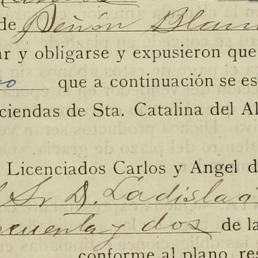 de Peñón Blan
ar y obligarse y expusieron que
que a continuación se es
ciendas de Sta. Catalina del Al
Licenciados Carlos y Angel d
l Sr D. Ladisla
cuenta y dos de la
conforme al plano, res